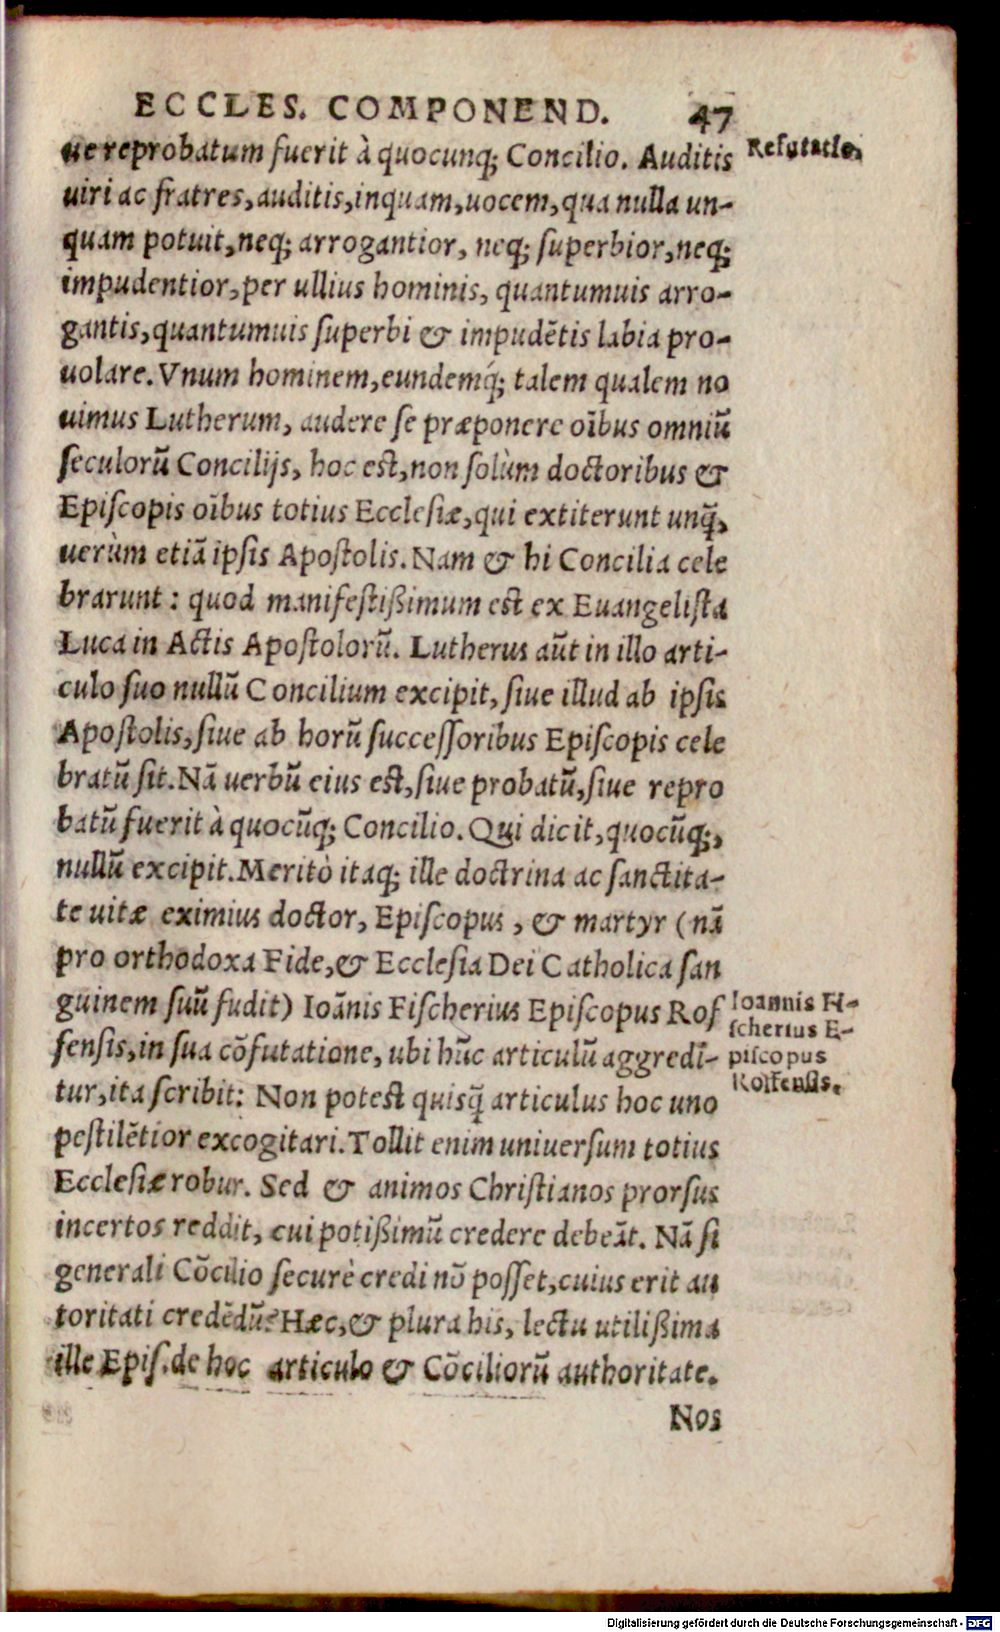 ECCLES. COMPONEND. 47
ue reprobatum fuerit à quocunq; Concilio. Auditis
Refutatio.
uiri ac fratres, auditis, inquam, uocem, qua nulla un-
quam potuit, neq; arrogantior, neq; superbior, neq;
impudentior, per ullius hominis, quantumuis arro-
gantis, quantumuis superbi & impudẽtis labia pro-
uolare. Vnum hominem, eundemq́; talem qualem no
uimus Lutherum, audere se præponere oĩbus omniũ
seculorũ Concilijs, hoc est, non solùm doctoribus &
Episcopis oĩbus totius Ecclesiæ, qui extiterunt unq̃,
uerùm etiã ipsis Apostolis. Nam & hi Concilia cele
brarunt: quod manifestißimum est ex Euangelista
Luca in Actis Apostolorũ. Lutherus aũt in illo arti-
culo suo nullũ Concilium excipit, siue illud ab ipsis
Apostolis, siue ab horũ successoribus Episcopis cele
bratũ sit. Nã uerbũ eius est, siue probatũ, siue repro
batũ fuerit à quocũq; Concilio. Qui dicit, quocũq;,
nullũ excipit. Meritò itaq; ille doctrina ac sanctita-
te uitæ eximius doctor, Episcopus, & martyr (nã
pro orthodoxa Fide, & Ecclesia Dei Catholica san
guinem suũ fudit) Ioãnis Fischerius Episcopus Rof
fensis, in sua cõfutatione, ubi hũc articulũ aggredi-
tur, ita scribit: Non potest quisq̃ articulus hoc uno
pestilẽtior excogitari. Tollit enim uniuersum totius
Ecclesiæ robur. Sed & animos Christianos prorsus
incertos reddit, cui potißimũ credere debeãt. Nã si
generali Cõcilio securè credi nõ posset, cuius erit au
toritati credẽdũ? Hæc, & plura his, lectu utilißima
ille Epis. de hoc articulo & Cõciliorũ authoritate.
Nos
Ioannis Fi-
scherius E-
piscopus
Roffensis.
Digitalisierung gefördert durch die Deutsche Forschungsgemeinschaft - DFG